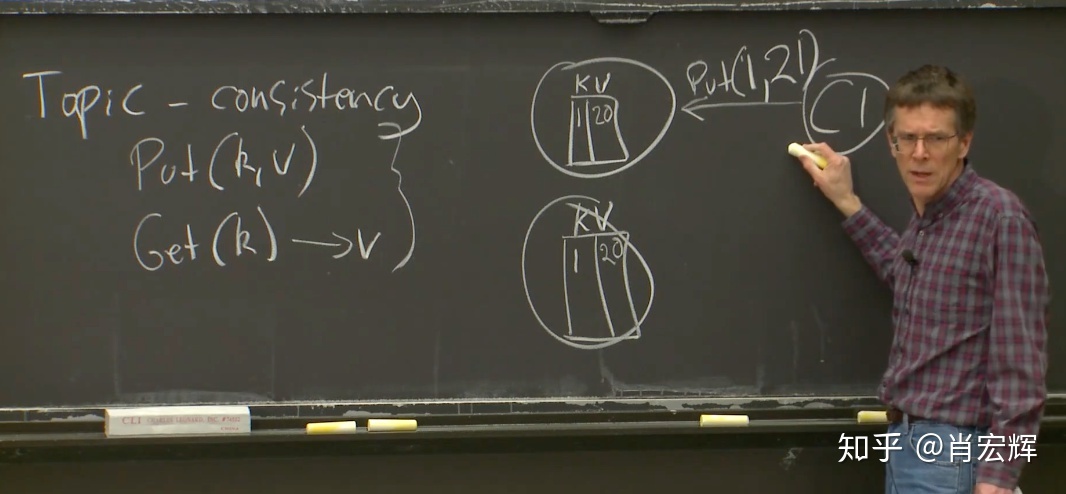 Topic - consistency
Put(k,v)
Get(k) → v
K V
1 20
Put(1,21)
C1
K V
1 20
知乎 @肖宏辉